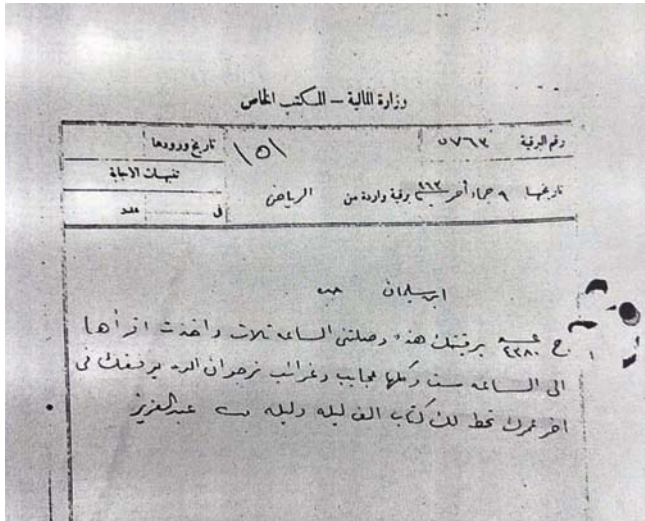 وزارة المالية – المكتب الخاص
رقم البرقية ٥٧٦٣ ١٥١ تاريخ ورودها
تنبيهات الاجابة
تاريخها ٩ جماد آخر ٣٦٣ برقية واردة من الرياض
في عدد
ابن سليمان جده
ج ٢٣٨٠ برقيتك هذه وصلتني الساعه ثلاث واخذت اقرأها
الى الساعه ست وكلها عجايب وغرائب نرجو ان الله يوفقك في
اخر عمرك تحط لك كتاب الف ليله وليله عبدالعزيز